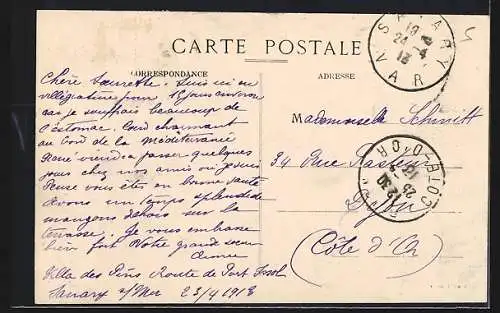 CARTE POSTALE
CORRESPONDANCE
ADRESSE
Chère Sœurette. Suis ici en
villégiature pour 15 jours environ
car je souffrais beaucoup de
l'estomac. Coin charmant
au bord de la méditerranée
viendra passer quelques
jours chez nos amis
vous êtes en bonne santé
Avons un temps splendide
mangeons dehors sur la
terrasse. Je vous embrasse
bien fort Votre grande sœur
Villa des Pins Route de Port Issol
Sanary s/Mer 23/4 1913
Mademoiselle Schmitt
34 Rue Pasteur
Dijon
(Côte d'Or)
SANARY
VAR
COTE-D'OR